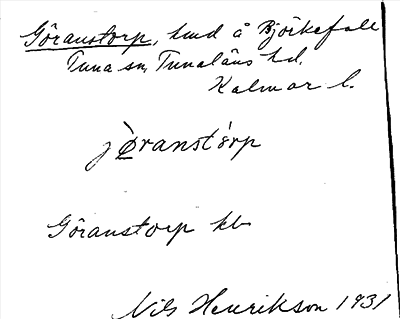 Göranstorp, hmd å Björkefall
Tuna sn, Tunaläns hd.
Kalmar l.
jø̀ranstórp
Göranstorp kb
Nils Henrikson 1931